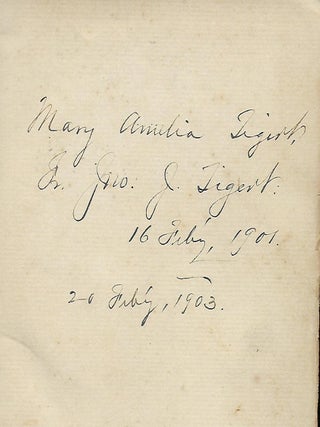 Mary Amelia Tigert,
Fr. Jno. J. Tigert.
16 Feb'y, 1901.
20 Feb'y, 1903.